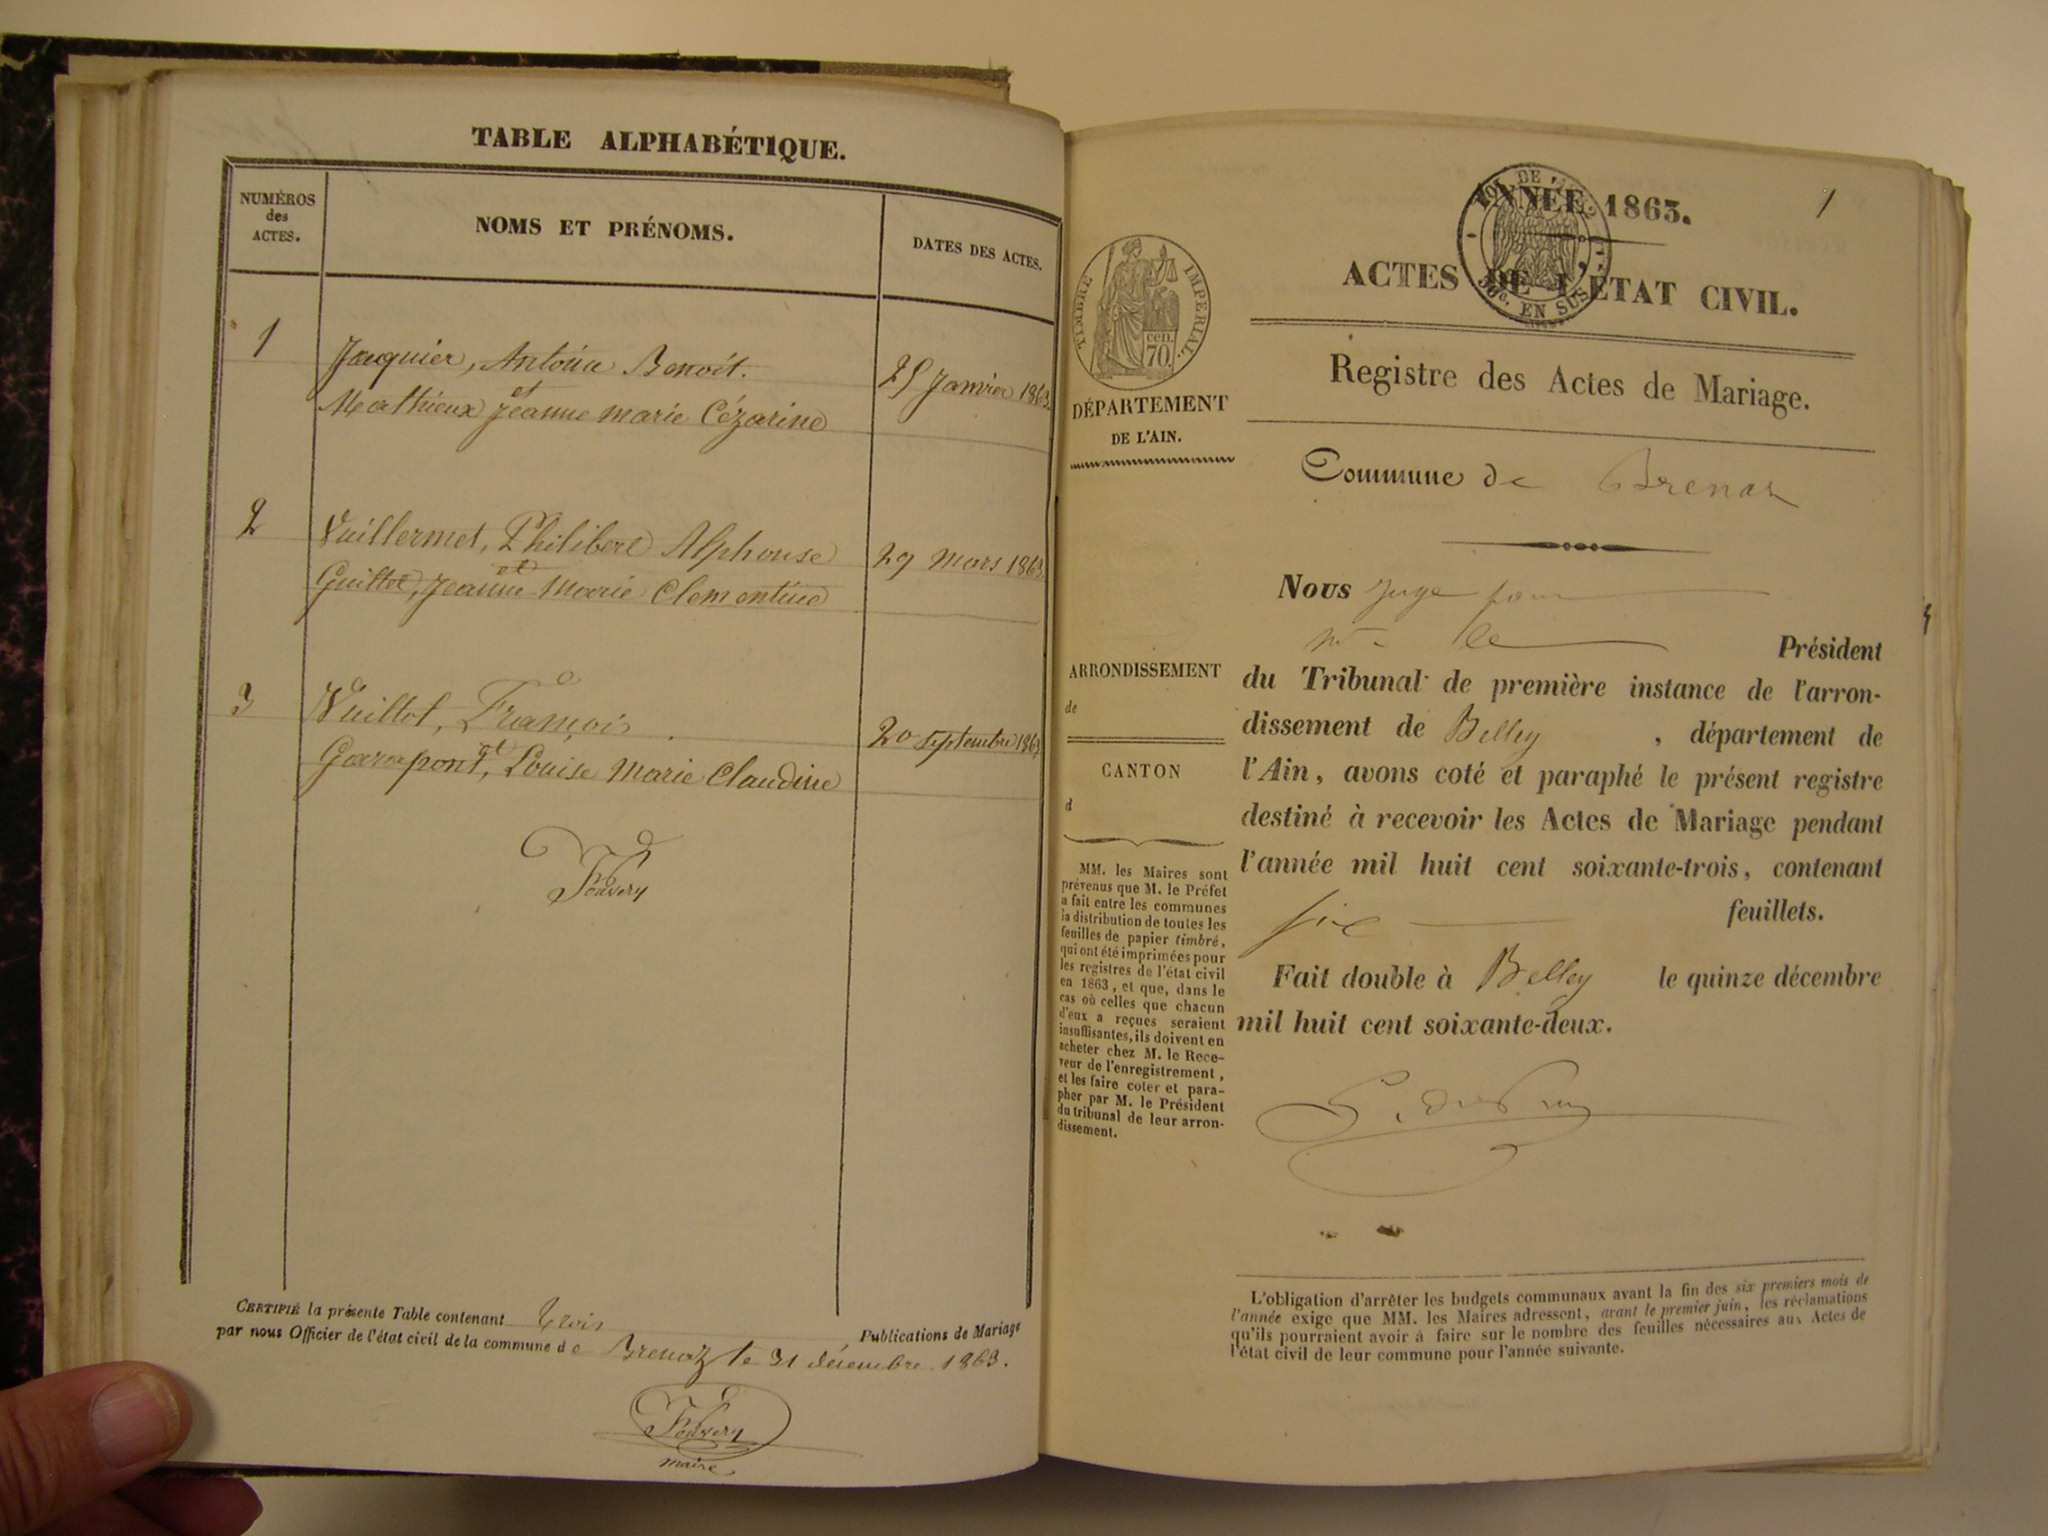 TABLE ALPHABÉTIQUE.
NUMÉROS
des
ACTES.
NOMS ET PRÉNOMS.
DATES DES ACTES.
1
Jacquier, Antoine Benoît.
25 Janvier 1863.
et
Mathieux Jeanne marie Cézarine
2
Vuillermet, Philibert Alphonse
29 mars 1863
et
Guillot, Jeanne Marie Clementine
3
Vuillot, François
20 septembre 1863
et
Garrapont, Louise Marie Claudine
CERTIFIÉ la présente Table contenant trois
Publications de Mariage
par nous Officier de l'état civil de la commune de Brenaz le 31 décembre 1863.
maire
1
ANNÉE 1863.
ACTES DE L'ÉTAT CIVIL.
Registre des Actes de Mariage.
Commune de Brenaz
TIMBRE IMPERIAL.
cen.
70.
50c. EN SUS
DÉPARTEMENT
DE L'AIN.
Nous Juge pour
Mr le Président
du Tribunal de première instance de l'arron-
dissement de Belley, département de
l'Ain, avons coté et paraphé le présent registre
destiné à recevoir les Actes de Mariage pendant
l'année mil huit cent soixante-trois, contenant
six feuillets.
Fait double à Belley le quinze décembre
mil huit cent soixante-deux.
ARRONDISSEMENT
de
CANTON
d
MM. les Maires sont
prévenus que M. le Préfet
a fait entre les communes
la distribution de toutes les
feuilles de papier timbré,
qui ont été imprimées pour
les registres de l'état civil
en 1863, et que, dans le
cas où celles que chacun
d'eux a reçues seraient
insuffisantes, ils doivent en
acheter chez M. le Rece-
veur de l'enregistrement,
et les faire coter et para-
pher par M. le Président
du tribunal de leur arron-
dissement.
L'obligation d'arrêter les budgets communaux avant la fin des six premiers mois de
l'année exige que MM. les Maires adressent, avant le premier juin, les réclamations
qu'ils pourraient avoir à faire sur le nombre des feuilles nécessaires aux Actes de
l'état civil de leur commune pour l'année suivante.